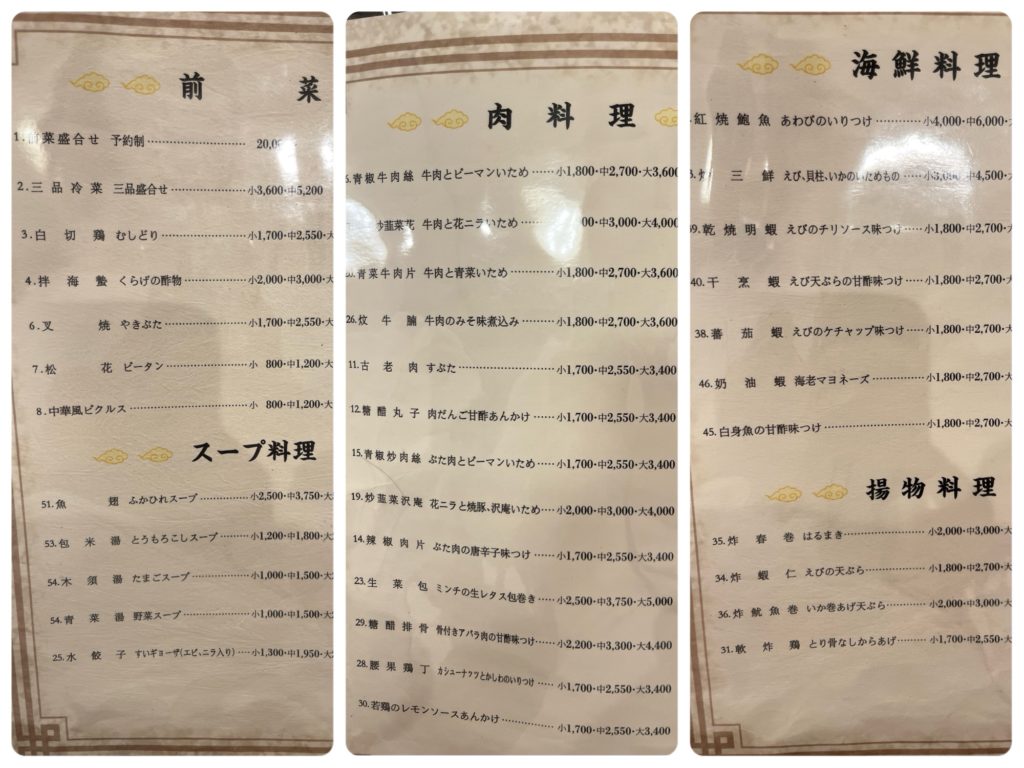 前菜
1.前菜盛合せ 予約制
2.三品冷菜 三品盛合せ 小3,600・中5,200
3.白切鶏 むしどり 小1,700・中2,550・大
4.拌海蟄 くらげの酢物 小2,000・中3,000・大
6.叉焼 やきぶた 小1,700・中2,550・大
7.松花 ピータン 小800・中1,200・大
8.中華風ピクルス 小800・中1,200・大
スープ料理
51.魚翅 ふかひれスープ 小2,500・中3,750・大
53.包米湯 とうもろこしスープ 小1,200・中1,800・大
54.木須湯 たまごスープ 小1,000・中1,500・大
54.青菜湯 野菜スープ 小1,000・中1,500・大
25.水餃子 すいギョーザ(エビ、ニラ入り) 小1,300・中1,950・大
肉料理
青椒牛肉絲 牛肉とピーマンいため 小1,800・中2,700・大3,600
炒韮菜花 牛肉と花ニラいため 中3,000・大4,000
青菜牛肉片 牛肉と青菜いため 小1,800・中2,700・大3,600
26.炆牛腩 牛肉のみそ味煮込み 小1,800・中2,700・大3,600
11.古老肉 すぶた 小1,700・中2,550・大3,400
12.糖醋丸子 肉だんご甘酢あんかけ 小1,700・中2,550・大3,400
15.青椒炒肉絲 ぶた肉とピーマンいため 小1,700・中2,550・大3,400
19.炒韮菜沢庵 花ニラと焼豚、沢庵いため 小2,000・中3,000・大4,000
14.辣椒肉片 ぶた肉の唐辛子味つけ 小1,700・中2,550・大3,400
23.生菜包 ミンチの生レタス包巻き 小2,500・中3,750・大5,000
29.糖醋排骨 骨付きアバラ肉の甘酢味つけ 小2,200・中3,300・大4,400
28.腰果鶏丁 カシューナッツとかしわのいりつけ 小1,700・中2,550・大3,400
30.若鶏のレモンソースあんかけ 小1,700・中2,550・大3,400
海鮮料理
紅焼鮑魚 あわびのいりつけ 小4,000・中6,000・
炒三鮮 えび、貝柱、いかのいためもの 中4,500・
39.乾焼明蝦 えびのチリソース味つけ 小1,800・中2,700・
40.干烹蝦 えび天ぷらの甘酢味つけ 小1,800・中2,700・
38.蕃茄蝦 えびのケチャップ味つけ 小1,800・中2,700・
46.奶油蝦 海老マヨネーズ 小1,800・中2,700・
45.白身魚の甘酢味つけ 小1,800・中2,700・
揚物料理
35.炸春巻 はるまき 小2,000・中3,000・大
34.炸蝦仁 えびの天ぷら 小1,800・中2,700・大
36.炸魷魚巻 いか巻あげ天ぷら 小2,000・中3,000・大
31.軟炸鶏 とり骨なしからあげ 小1,700・中2,550・大